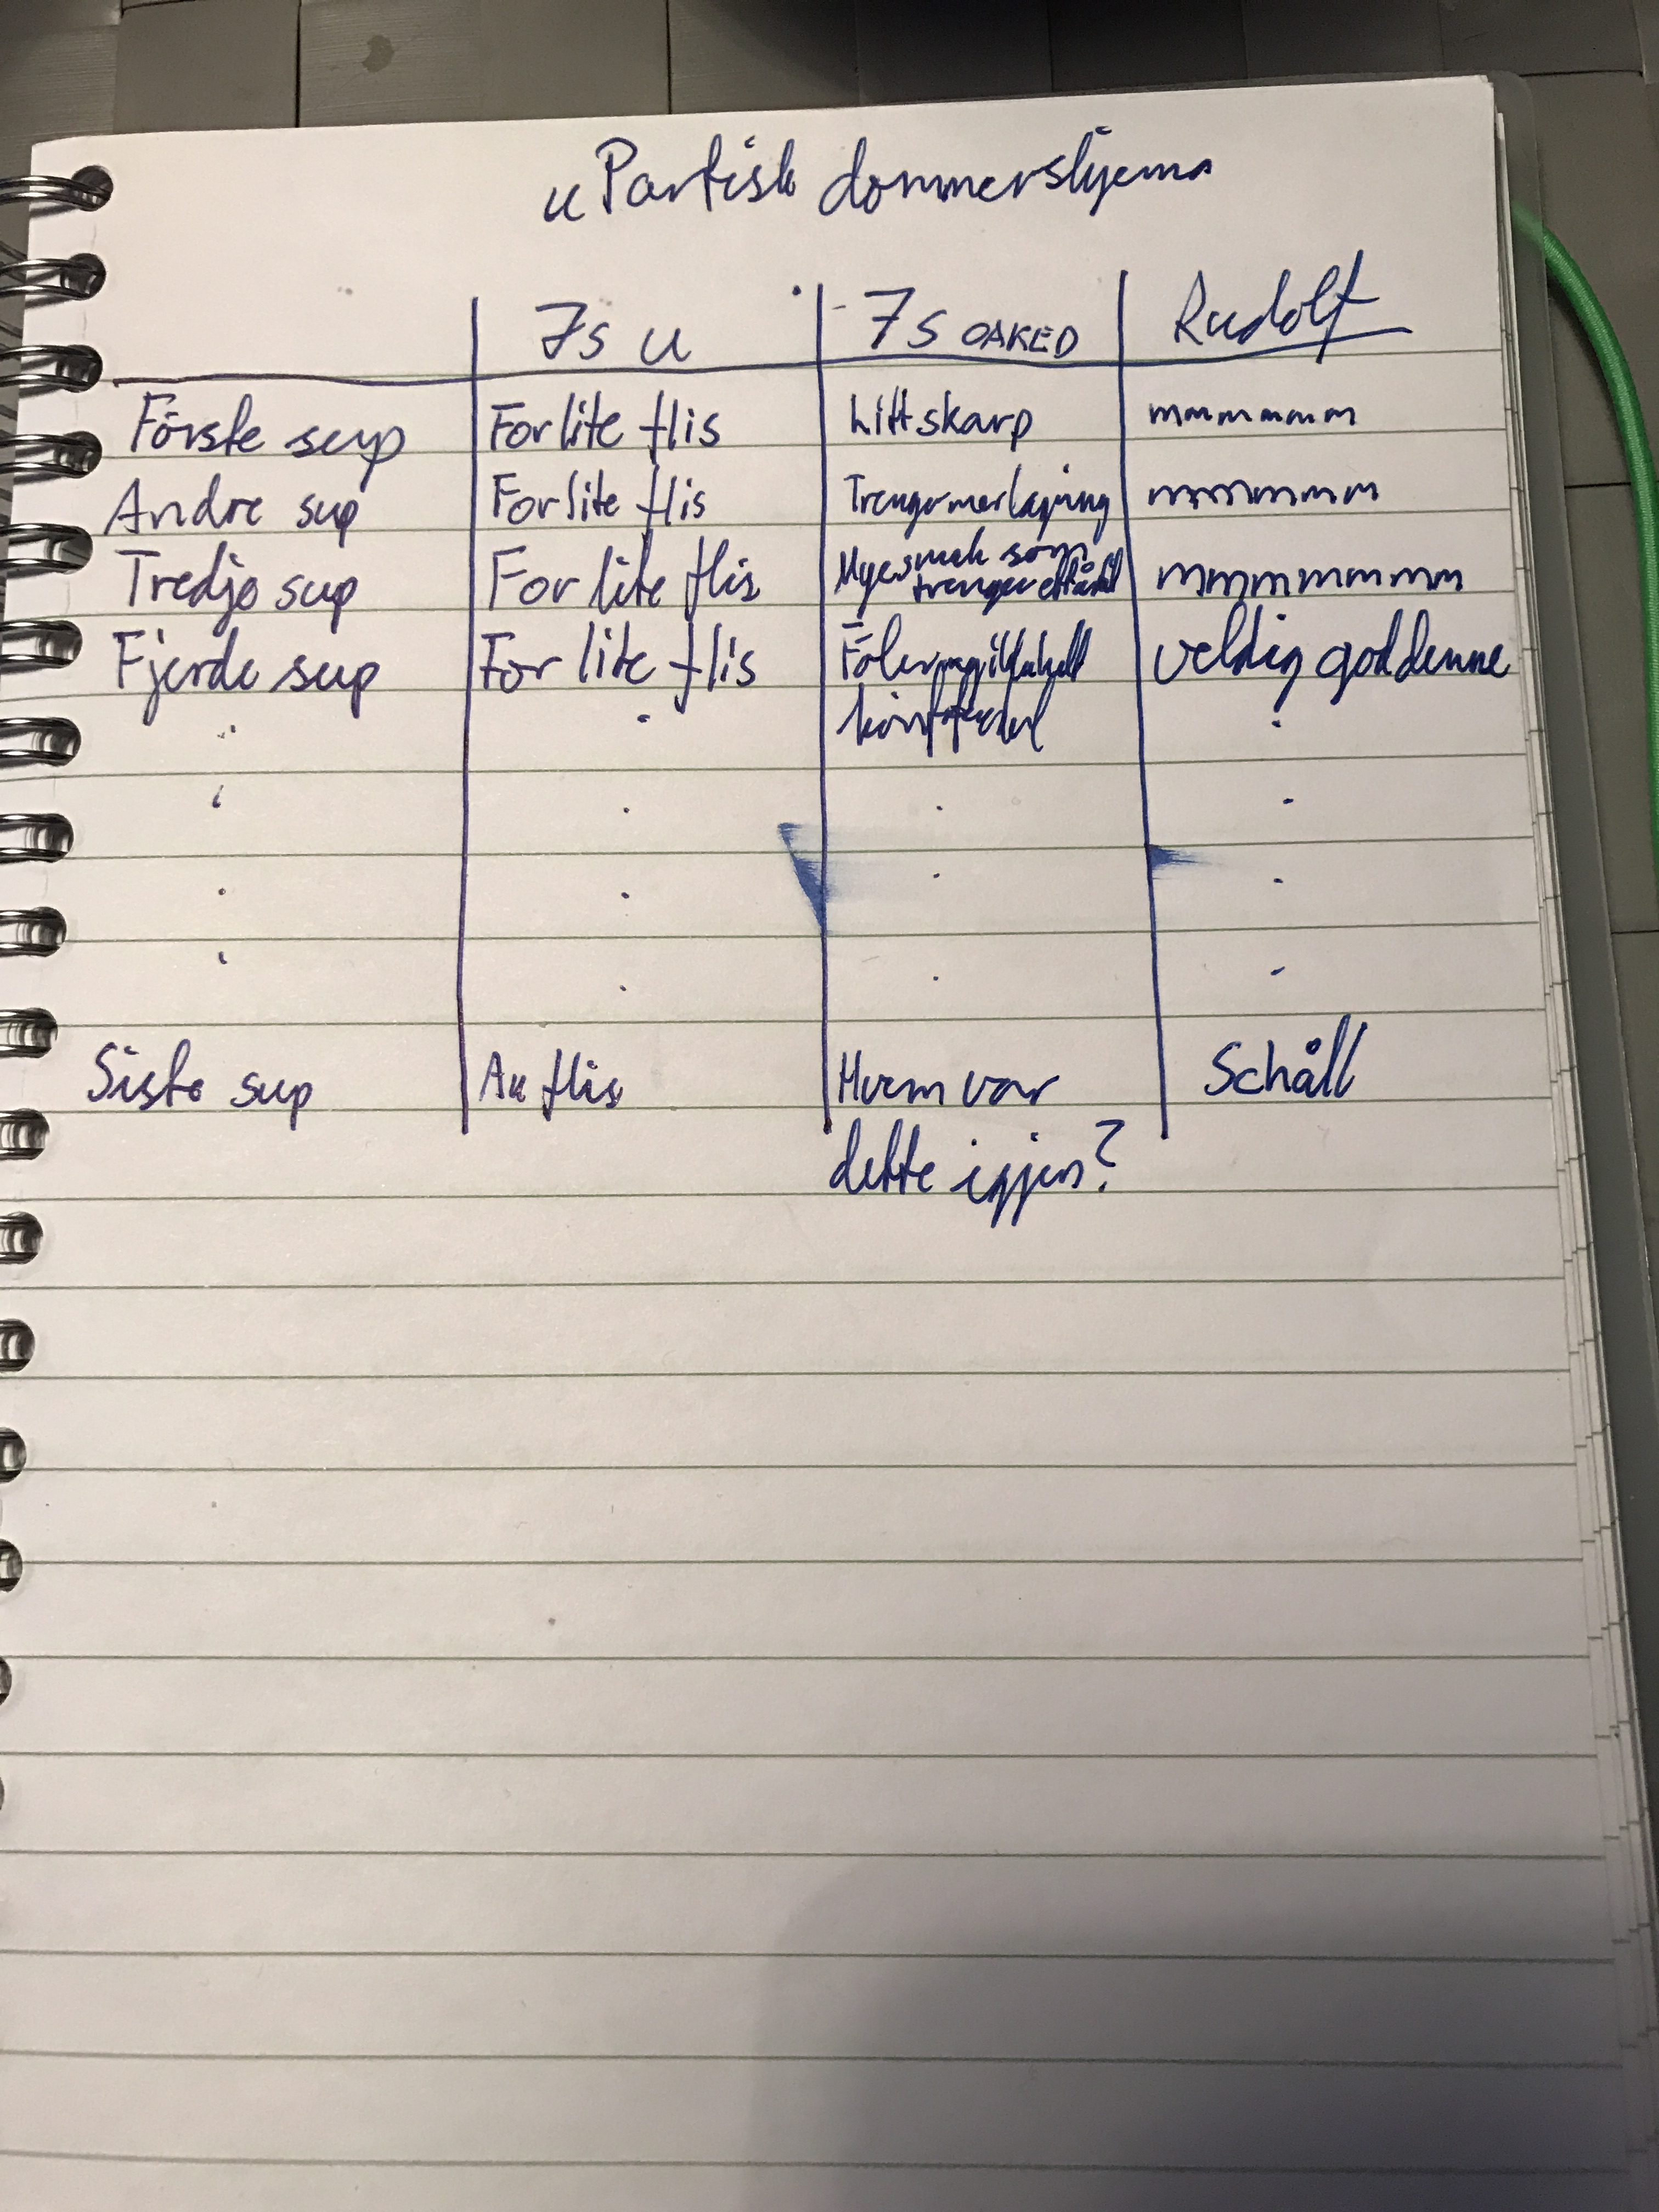 uPartisk dommerskjema
7s u 7s OAKED Rudolf
Förste sup For lite flis Litt skarp mmmmmm
Andre sup For lite flis Trenger mer lagring mmmmmm
Tredje sup For lite flis Mye smak som trenger mmmmmmm
Fjerde sup For lite flis Föler veldig god denne
Siste sup Au flis Hvem var Schåll
dette igjen?